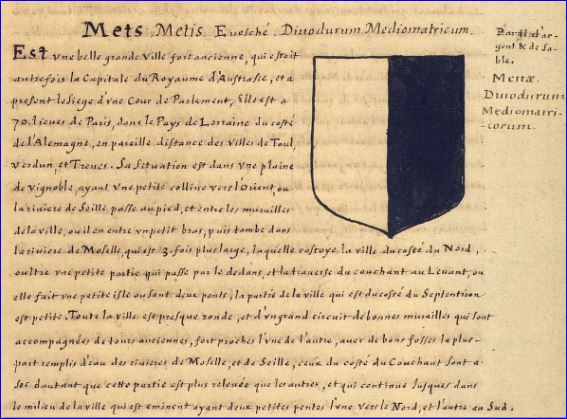 Mets. Metis Euesché. Diuodurum Mediomatricum.
Est vne belle grande ville fort ancienne, qui estoit
autrefois la Capitale du Royaume d'Austrasie, et a
present le siege d'vne Cour de Parlement, Elle est a
70. lieues de Paris, dans le Pays de Lorraine du costé
de l'Alemagne, en pareille distance des villes de Toul,
Verdun, et Treues. Sa situation est dans vne plaine
de vignoble, ayant vne petite colline vers l'Orient, ou
la riuiere de Seille passe au pied, et entre les murailles
de la ville, ou il en entre vn petit bras, puis tombe dans
la riuiere de Moselle, qui est 3. fois plus large, laquelle costoye la ville du costé du Nord,
oultre vne petite partie qui passe par le dedans, et la trauerse du couchant au Leuant, ou
elle fait vne petite isle ou sont deux ponts, la partie de la ville qui est du costé du Septentrion
est petite. Toute la ville est presque ronde, et d'vn grand circuit de bonnes murailles qui sont
accompagnées de tours anciennes, fort proches l'vne de l'autre, auec de bons fossez la plus-
part remplis d'eau des riuieres de Moselle, et de Seille, ceux du costé du Couchant sont a
sec dautant que cette partie est plus releuée que les autres, et qui continue jusques dans
le milieu de la ville qui est eminent ayant deux petites pentes l'vne vers le Nord, et l'autre au Sud.
Parti d'ar-
gent & de sa-
ble.
Metæ.
Diuodurum
Mediomatri-
-corum.